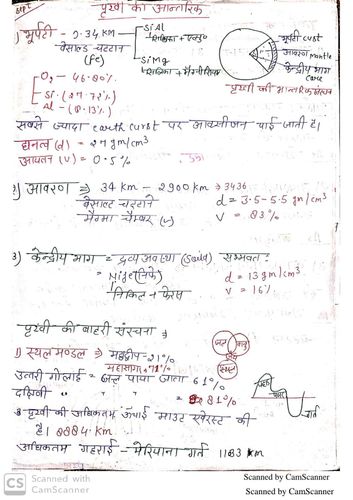 पृथ्वी का आन्तरिक
1) भूर्पटी - 0.34 KM
SiAl
सिलिका + एल्यु०
बेसाल्ट चट्टान
(fe)
SiMg
सिलिका + मैग्नीशियम
भूर्पटी curst
आवरण mantle
केन्द्रीय भाग
core
पृथ्वी की आन्तरिक संरचना
O₂ - 46.80%
Si - (27.72%)
Al - (8.13%)
सबसे ज्यादा earth curst पर आक्सीजन पाई जाती है।
घनत्व (d) = 2.7 gm/cm³
आयतन (V) = 0.5%
2) आवरण ⇒ 34 KM - 2900 KM → 3436
बेसाल्ट चट्टाने
मैग्मा चैम्बर (v)
d = 3.5 - 5.5 gm/cm³
V = 83%
3) केन्द्रीय भाग = द्रव्य अवस्था (Solid) सम्भवत:
= Nife (निफे)
निकिल + फेरस
d = 13 gm/cm³
V = 16%
पृथ्वी की बाहरी संरचना
1) स्थल मण्डल ⇒ महाद्वीप - 29%
महासागर - 71%
जल वायु
स्थल
उत्तरी गोलार्द्ध = जल पाया जाता 61%
दक्षिणी " " = " 81%
पृथ्वी की अधिकतम ऊंचाई माउंट एवरेस्ट की
है। 8884 KM
अधिकतम गहराई - मेरियाना गर्त 1183 KM
गर्त
CS Scanned with
CamScanner
Scanned by CamScanner
Scanned by CamScanner